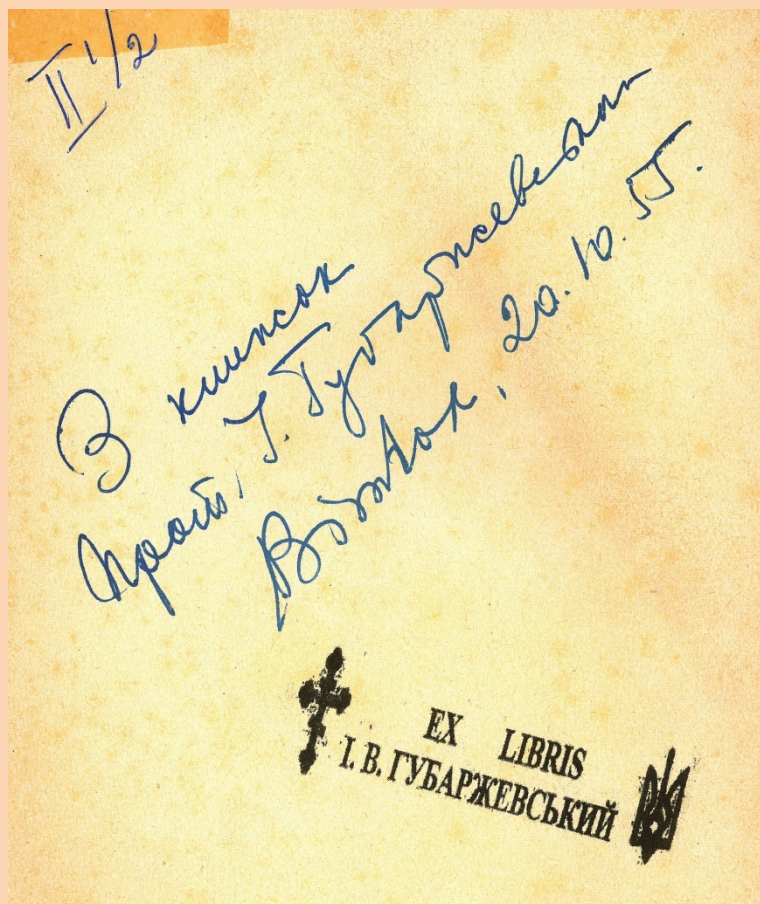 II 1/2
З книжок
прот. І. Губаржевського
20.10.55.
EX LIBRIS
І. В. ГУБАРЖЕВСЬКИЙ